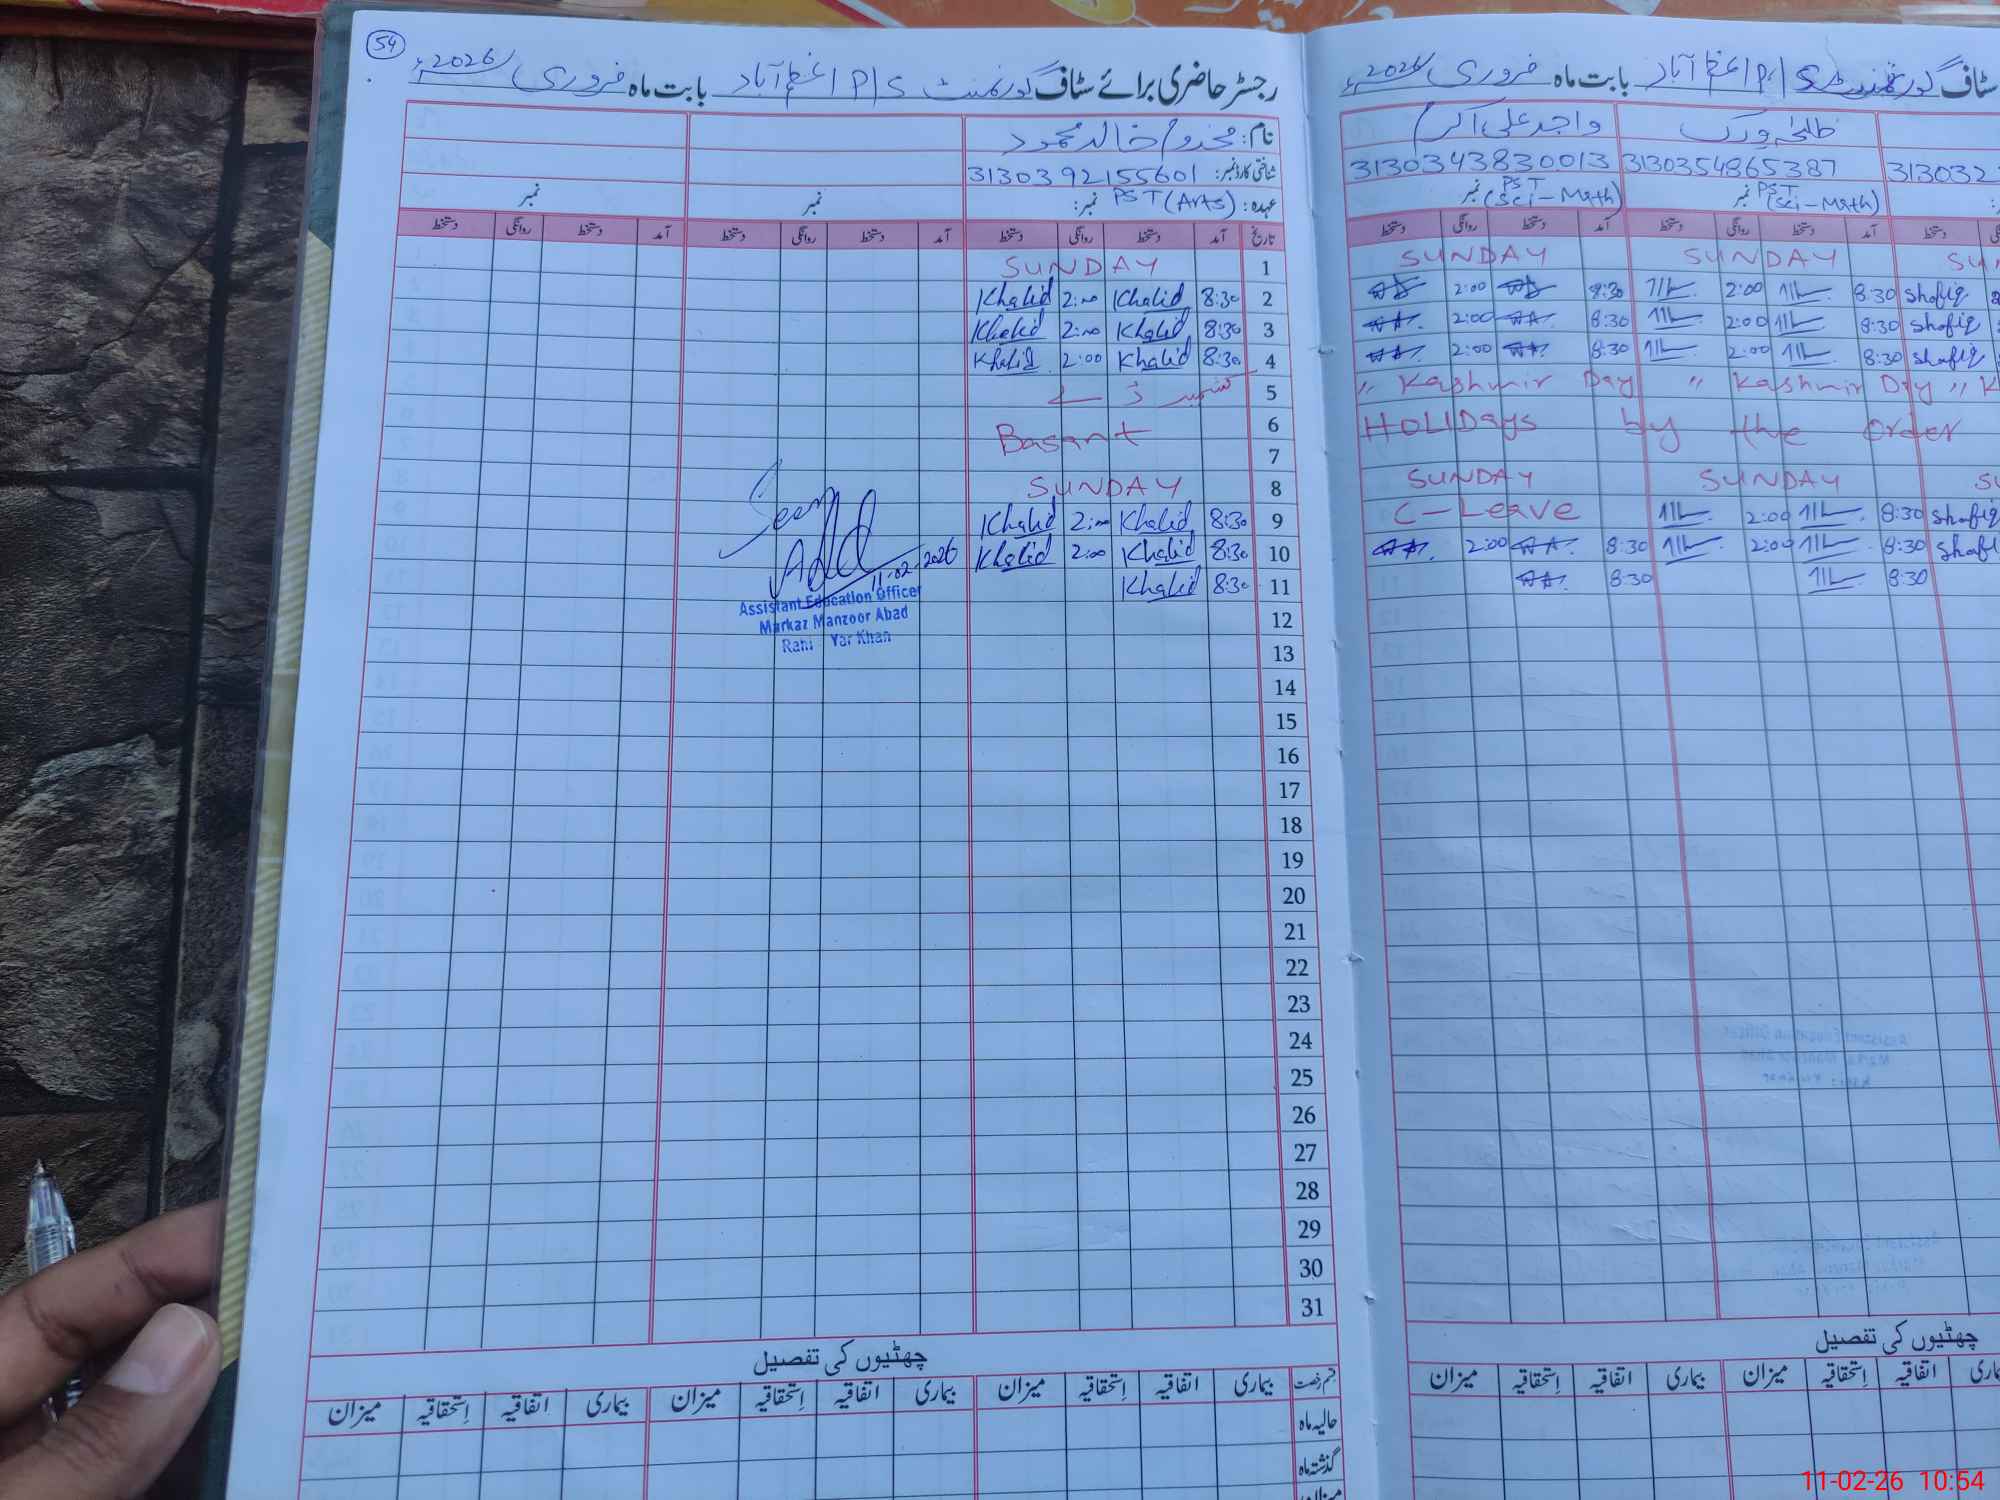 54
رجسٹر حاضری برائے سٹاف گورنمنٹ P/S اعظم آباد بابت ماہ فروری 2026ء
نام: مخدوم خالد محمود
شناختی کارڈ نمبر: 3130392155601
عہدہ: PST (Arts) نمبر: نمبر نمبر
تاریخ آمد دستخط روانگی دستخط آمد دستخط روانگی دستخط آمد دستخط روانگی دستخط
1 SUNDAY
2 8:30 Khalid 2:00 Khalid
3 8:30 Khalid 2:00 Khalid
4 8:30 Khalid 2:00 Khalid
5 کشمیر ڈے
6 Basant
7
8 SUNDAY
9 8:30 Khalid 2:00 Khalid
10 8:30 Khalid 2:00 Khalid
11 8:30 Khalid
12
13
14
15
16
17
18
19
20
21
22
23
24
25
26
27
28
29
30
31
Seen
11-02-2026
Assistant Education Officer
Markaz Manzoor Abad
Rahi Yar Khan
چھٹیوں کی تفصیل
قسم رخصت بیماری اتفاقیہ استحقاقیہ میزان بیماری اتفاقیہ استحقاقیہ میزان بیماری اتفاقیہ استحقاقیہ میزان
حالیہ ماہ
گذشتہ ماہ
میزان
سٹاف گورنمنٹ P/S اعظم آباد بابت ماہ فروری 2026ء
واجد علی اکرم
313032 3130354865387 3130343830013
PST (Sci-Math) نمبر PST (Sci-Math) نمبر
دستخط آمد دستخط روانگی دستخط آمد دستخط روانگی دستخط
SUNDAY SUNDAY SU
2:00 8:30 2:00 8:30 Shafiq
2:00 8:30 2:00 8:30 Shafiq
2:00 8:30 2:00 8:30 Shafiq
" Kashmir Day " Kashmir Day " K
HOLIDays by the order
SUNDAY SUNDAY SU
C-Leave 2:00 8:30 Shafiq
2:00 8:30 2:00 8:30 Shafi
8:30 8:30
چھٹیوں کی تفصیل
بیماری اتفاقیہ استحقاقیہ میزان بیماری اتفاقیہ استحقاقیہ میزان
11-02-26 10:54